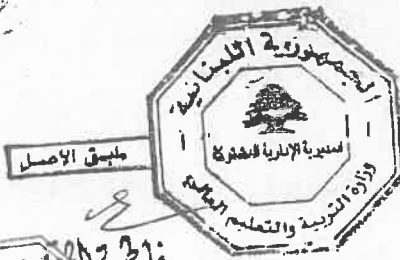 الجمهورية اللبنانية
المديرية الإدارية المشتركة
وزارة التربية والتعليم العالي
طبق الاصل